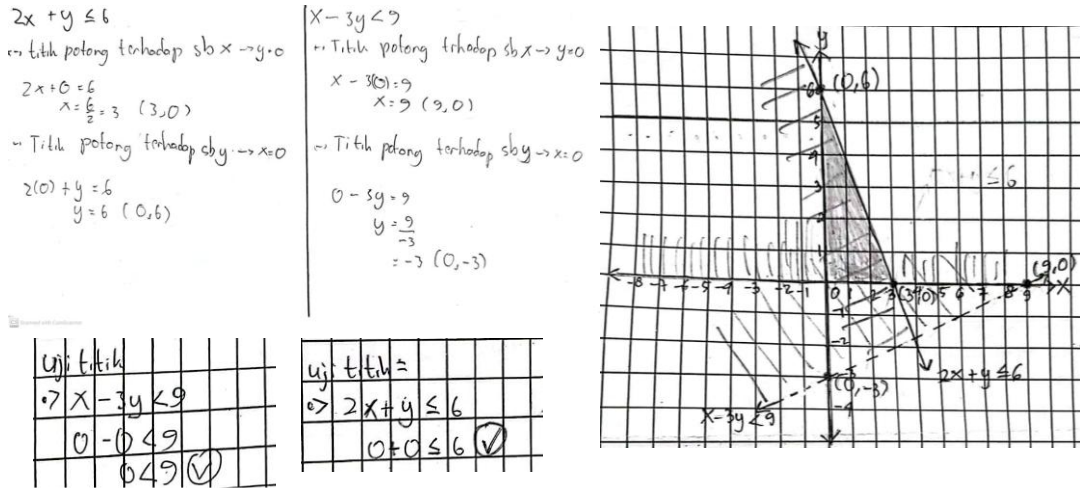 2x + y ≤ 6
~> titik potong terhadap sb x → y=0
2x + 0 = 6
x = 6/2 = 3 (3,0)
~> Titik potong terhadap sb y → x=0
2(0) + y = 6
y = 6 (0,6)
x - 3y < 9
~> Titik potong trhadap sb x → y=0
x - 3(0) = 9
x = 9 (9,0)
~> Titik potong terhadap sb y → x=0
0 - 3y = 9
y = 9/-3
= -3 (0,-3)
Scanned with CamScanner
Uji titik
•> x - 3y < 9
0 - 0 < 9
0 < 9 ✓
uji titik =
•> 2x + y ≤ 6
0 + 0 ≤ 6 ✓
y
6 (0,6)
5
4
3
2
1
(9,0)
-8 -7 -6 -5 -4 -3 -2 -1 0 1 2 3 (3,0) 5 6 7 8 9 x
-1
-2
-3
(0,-3)
2x + y ≤ 6
-4
x - 3y < 9